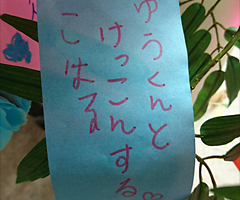 ゆうくんと
けっこんする。
こはる